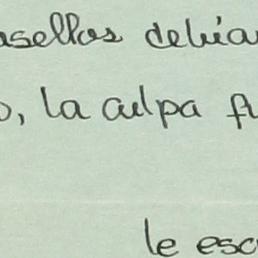 asellas debía
o, la culpa fu
le esc